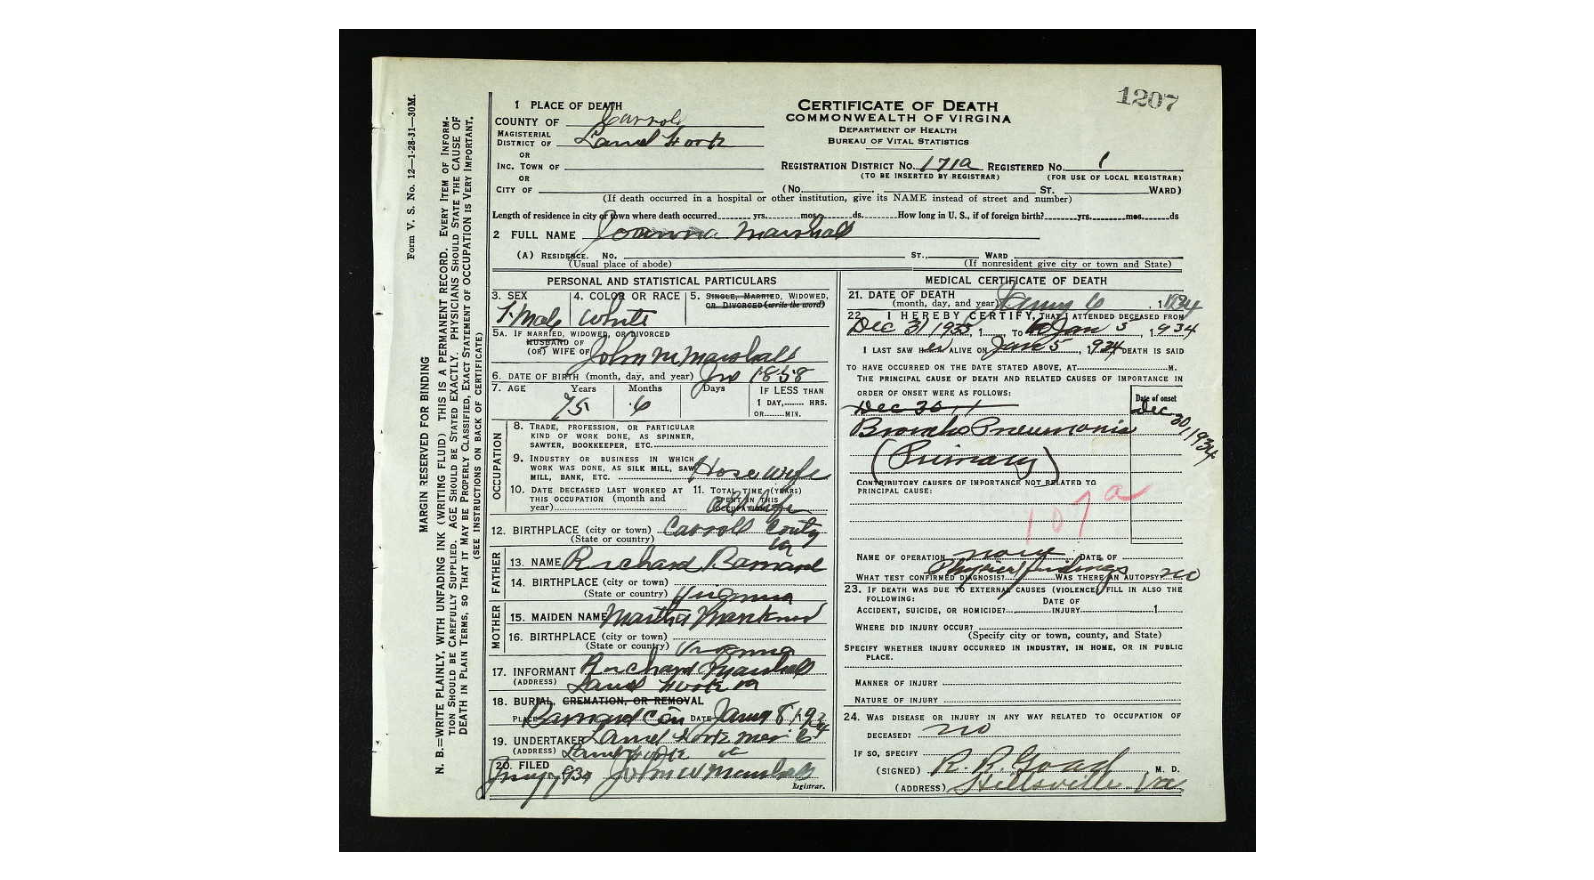 1207
1 PLACE OF DEATH
COUNTY OF Carroll
MAGISTERIAL DISTRICT OF Laurel Fork
OR
INC. TOWN OF
OR
CITY OF
CERTIFICATE OF DEATH
COMMONWEALTH OF VIRGINIA
DEPARTMENT OF HEALTH
BUREAU OF VITAL STATISTICS
REGISTRATION DISTRICT NO. 171a REGISTERED NO. 1
(TO BE INSERTED BY REGISTRAR) (FOR USE OF LOCAL REGISTRAR)
(No. ST. WARD)
(If death occurred in a hospital or other institution, give its NAME instead of street and number)
Length of residence in city or town where death occurred yrs. mos. ds. How long in U. S., if of foreign birth? yrs. mos. ds
2 FULL NAME Joanna Marshall
(A) RESIDENCE. No. ST. WARD
(Usual place of abode) (If nonresident give city or town and State)
PERSONAL AND STATISTICAL PARTICULARS
3. SEX 4. COLOR OR RACE 5. SINGLE, MARRIED, WIDOWED, OR DIVORCED (write the word)
White
5A. IF MARRIED, WIDOWED, OR DIVORCED
HUSBAND OF
(OR) WIFE OF John M Marshall
6. DATE OF BIRTH (month, day, and year) 1858
7. AGE Years Months Days IF LESS THAN
75 6 1 DAY, HRS.
OR MIN.
OCCUPATION
8. TRADE, PROFESSION, OR PARTICULAR
KIND OF WORK DONE, AS SPINNER,
SAWYER, BOOKKEEPER, ETC.
9. INDUSTRY OR BUSINESS IN WHICH
WORK WAS DONE, AS SILK MILL, SAW
MILL, BANK, ETC. Hose wife
10. DATE DECEASED LAST WORKED AT THIS OCCUPATION (month and year)
11. TOTAL TIME (YEARS) SPENT IN THIS OCCUPATION
12. BIRTHPLACE (city or town) Carroll County
(State or country) Va
FATHER
13. NAME Richard Barnard
14. BIRTHPLACE (city or town)
(State or country) Virginia
MOTHER
15. MAIDEN NAME Martha
16. BIRTHPLACE (city or town)
(State or country) Virginia
17. INFORMANT Richard Marshall
(ADDRESS) Laurel Fork Va
18. BURIAL, CREMATION, OR REMOVAL
PLACE Barnard Cem DATE 8 1934
19. UNDERTAKER Laurel Fork
(ADDRESS) Laurel Fork
20. FILED John W Marshall
Registrar.
MEDICAL CERTIFICATE OF DEATH
21. DATE OF DEATH
(month, day, and year) 6, 1934
22. I HEREBY CERTIFY, THAT I ATTENDED DECEASED FROM
Dec 31 1933, 1 TO Jan 5, 1934
I LAST SAW her ALIVE ON Jan 5, 1934 DEATH IS SAID
TO HAVE OCCURRED ON THE DATE STATED ABOVE, AT M.
THE PRINCIPAL CAUSE OF DEATH AND RELATED CAUSES OF IMPORTANCE IN
ORDER OF ONSET WERE AS FOLLOWS:
Date of onset
Dec 30
Broncho Pneumonia Dec 30, 1934
(Primary)
CONTRIBUTORY CAUSES OF IMPORTANCE NOT RELATED TO
PRINCIPAL CAUSE:
107a
NAME OF OPERATION none DATE OF
WHAT TEST CONFIRMED DIAGNOSIS? Physical findings WAS THERE AN AUTOPSY? no
23. IF DEATH WAS DUE TO EXTERNAL CAUSES (VIOLENCE) FILL IN ALSO THE
FOLLOWING:
ACCIDENT, SUICIDE, OR HOMICIDE? DATE OF INJURY 1
WHERE DID INJURY OCCUR?
(Specify city or town, county, and State)
SPECIFY WHETHER INJURY OCCURRED IN INDUSTRY, IN HOME, OR IN PUBLIC
PLACE.
MANNER OF INJURY
NATURE OF INJURY
24. WAS DISEASE OR INJURY IN ANY WAY RELATED TO OCCUPATION OF
DECEASED? no
IF SO, SPECIFY
(SIGNED) R. R. Goad M. D.
(ADDRESS) Hillsville Va
Form V. S. No. 12—1-28-31—30M.
MARGIN RESERVED FOR BINDING
N. B.—WRITE PLAINLY, WITH UNFADING INK (WRITING FLUID) THIS IS A PERMANENT RECORD. EVERY ITEM OF INFORM-
TION SHOULD BE CAREFULLY SUPPLIED. AGE SHOULD BE STATED EXACTLY. PHYSICIANS SHOULD STATE THE CAUSE OF
DEATH IN PLAIN TERMS, SO THAT IT MAY BE PROPERLY CLASSIFIED, EXACT STATEMENT OF OCCUPATION IS VERY IMPORTANT.
(SEE INSTRUCTIONS ON BACK OF CERTIFICATE)